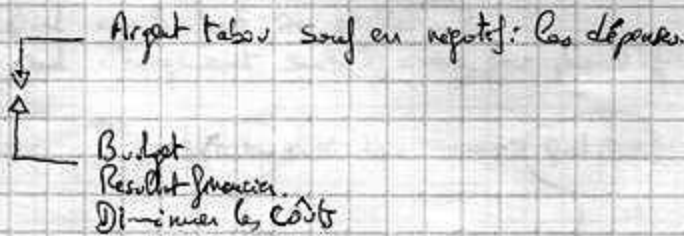 Argent tabou sauf en négatif: les dépenses.
Budget
Resultat financier.
Diminuer les coûts